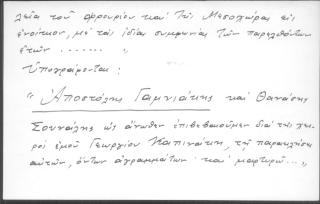 λεῖα τοῦ φρουρίου καί τῆς Μεσοχώρας εἰς
ἐνοίκιον, μέ τάς ἰδίας συμφωνίας τῶν παρελθόντων
ἐτῶν ....... „
Ὑπογράφονται:
“ Ἀποστόλης Γαμνιάκης καί Θανάσης
Σουνάλης ὡς ἄνωθεν ἐπιβεβαιοῦμεν διά τῆς χει-
ρός ἐμοῦ Γεωργίου Καπινάκη, τῇ παρακλήσει
αὐτῶν, ὄντων ἀγραμμάτων καί μαρτυρῶ...„